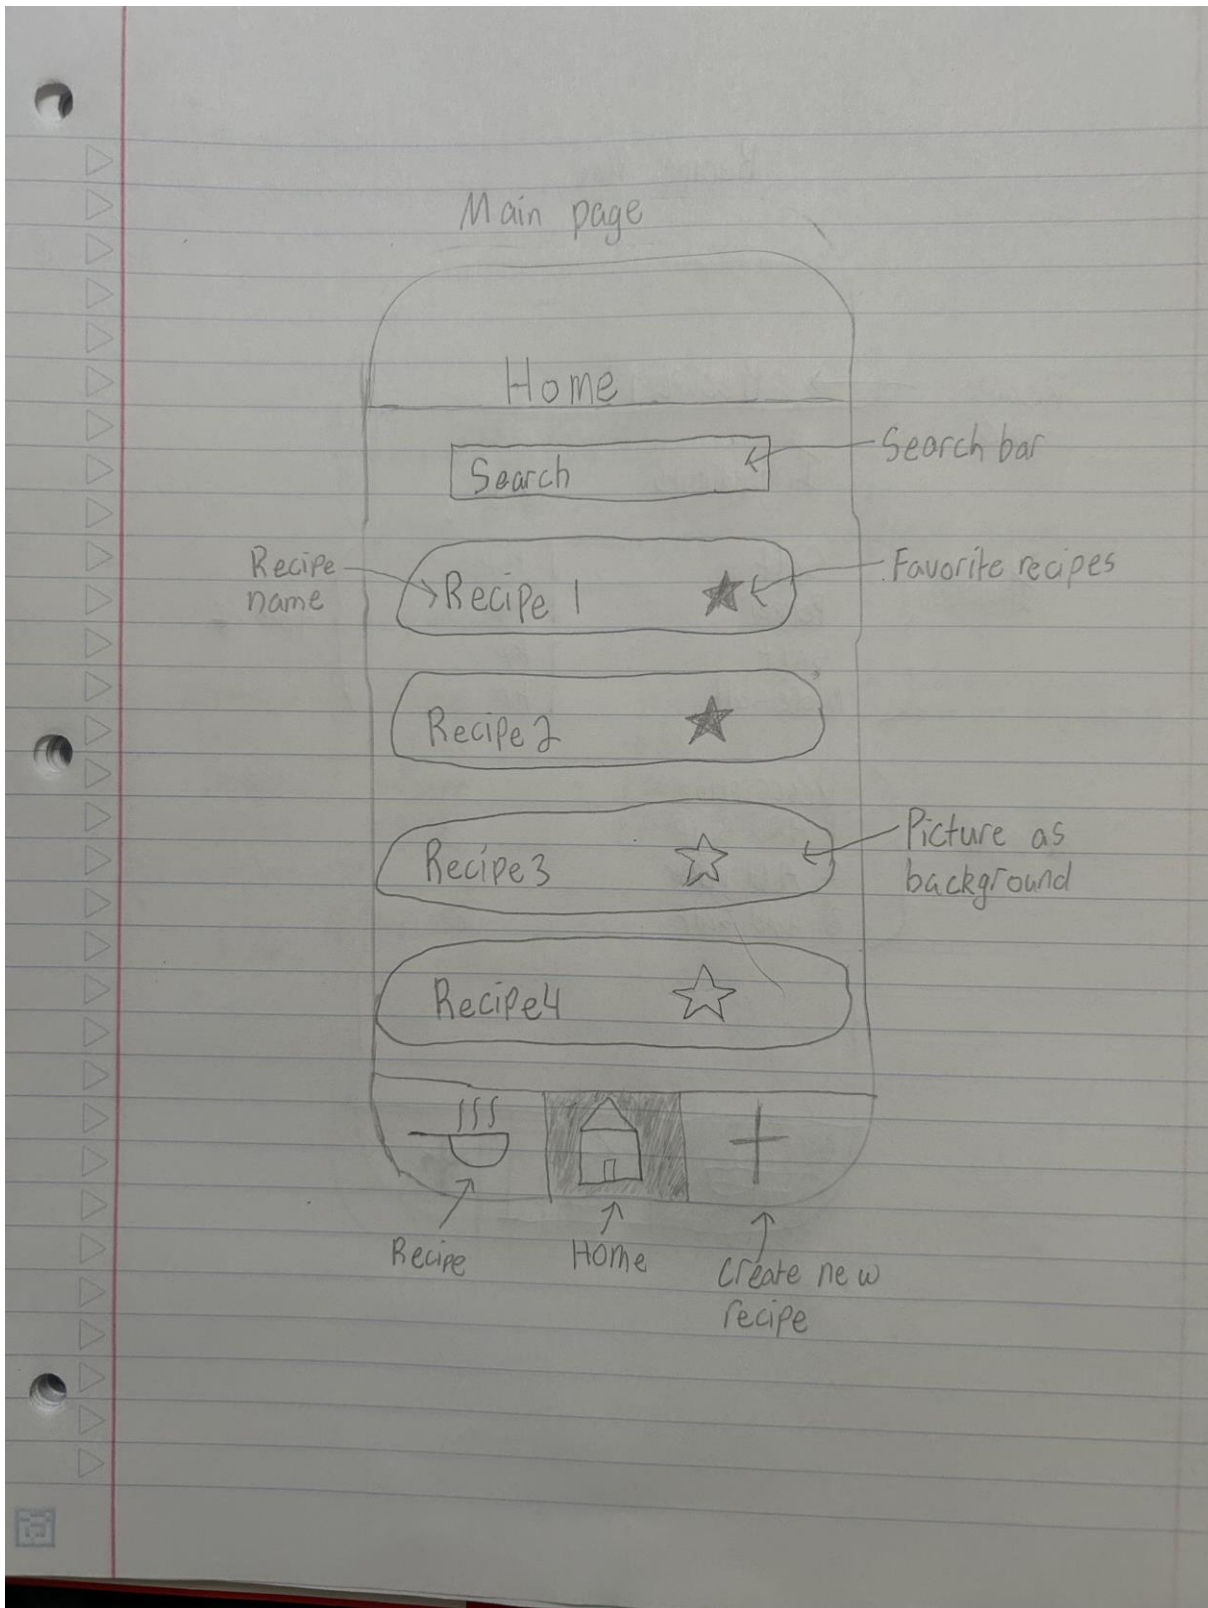 Main page
Home
Search
Search bar
Recipe
name
Recipe 1
Favorite recipes
Recipe 2
Recipe 3
Picture as
background
Recipe 4
Recipe
Home
Create new
recipe